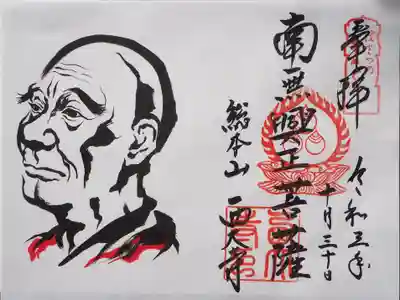 奉拝
令和三年
十月三十日
南無興正菩薩
総本山 西大寺